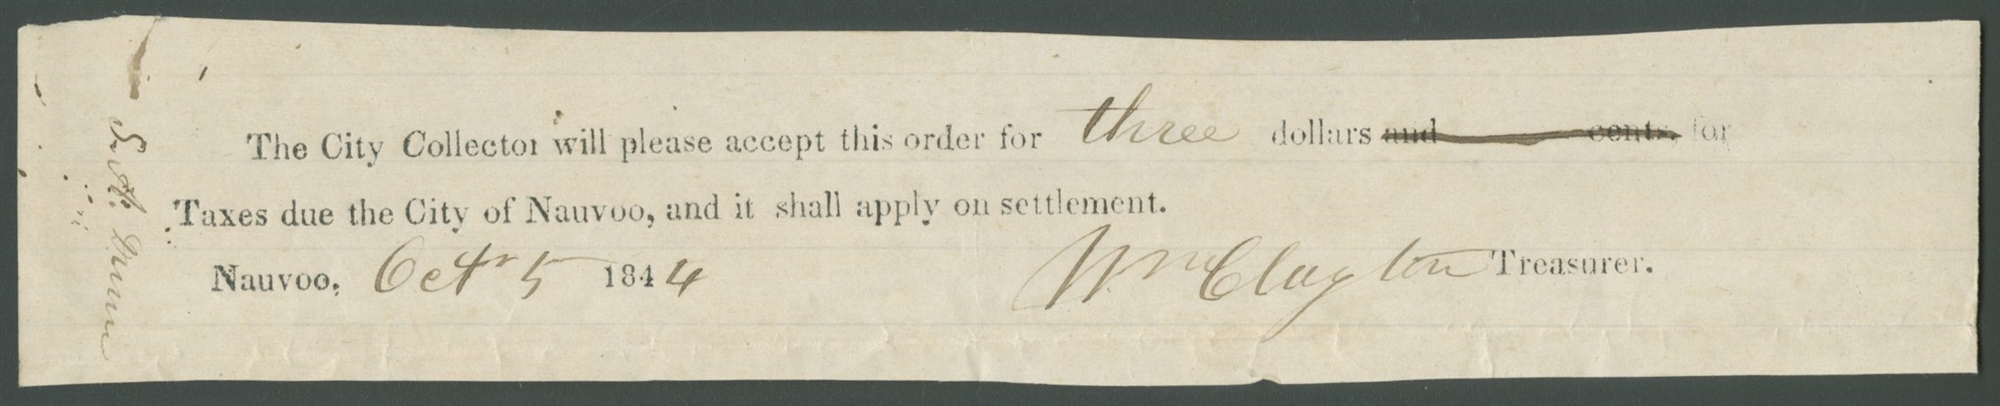 The City Collector will please accept this order for three dollars and cents, for
Taxes due the City of Nauvoo, and it shall apply on settlement.
Nauvoo, Octr 5 1844 Wm Clayton Treasurer.
Dunn